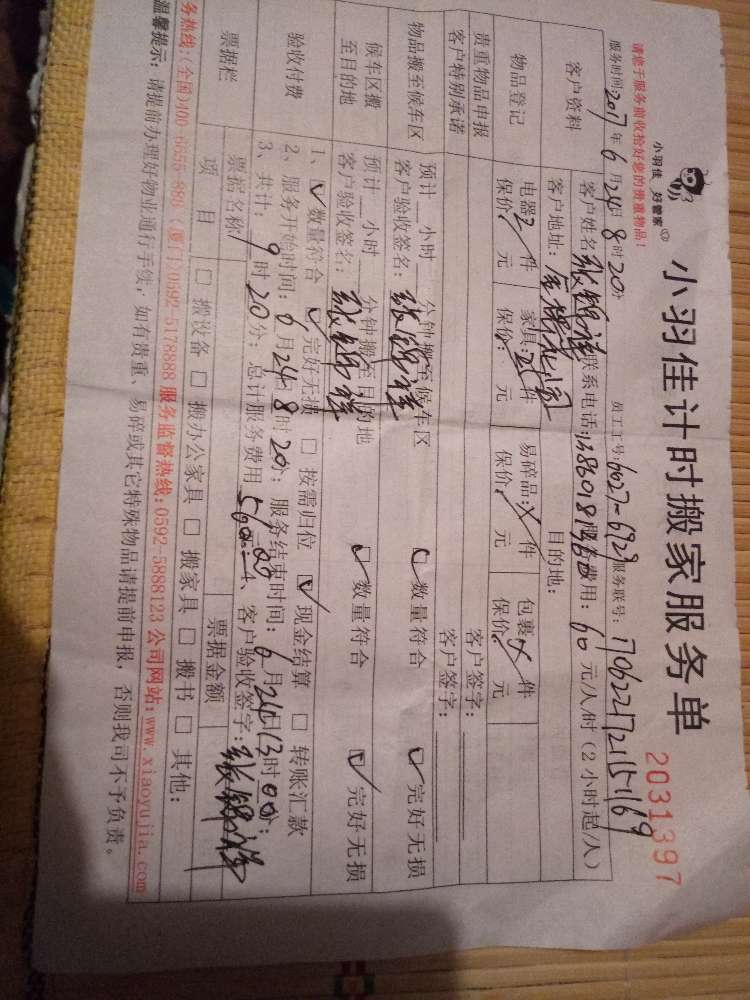 请您于服务前收拾好您的贵重物品!
小羽佳 好管家
小羽佳计时搬家服务单
2031397
服务时间:2017年6月24日8时20分 员工工号:6627-6929 服务联号:170622172115169
客户资料 客户姓名: 联系电话: 服务费用:60元/人/时(2小时起/人)
客户地址: 目的地:
物品登记 电器 件 家具 件 易碎品: 件 包裹 件
保价: 元 保价: 元 保价: 元 保价: 元
贵重物品申报 客户签字:
客户特别承诺 客户签字:
物品搬至候车区 预计 小时 分钟搬至候车区
客户验收签名: 数量符合 完好无损
候车区搬至目的地 预计 小时 分钟搬至目的地
客户验收签名: 数量符合 完好无损
验收付费 1、数量符合 完好无损 按需归位 现金结算 转账汇款
2、服务开始时间:6月24日8时20分;服务结束时间:6月24日13时00分;
3、共计: 9时20分;总计服务费用560.00 4、客户验收签字:
票据栏 票据名称 票据金额
项目 搬设备 搬办公家具 搬家具 搬书 其他:
务热线:(全国)400-6655-880 (厦门)0592-5178888 服务监督热线:0592-5888123 公司网站:www.xiaoyujia.com
温馨提示:请提前办理好物业通行手续;如有贵重、易碎或其它特殊物品请提前申报,否则我司不予负责。